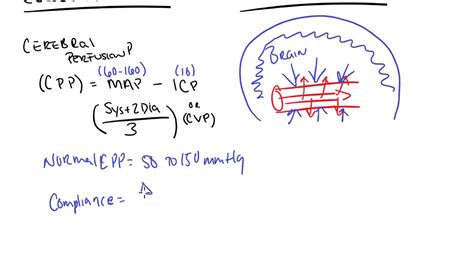 CEREBRAL
PERFUSION P
(60-160) (10)
(CPP) = MAP - ICP
(Sys+2Dia / 3) OR (CVP)
BRAIN
Normal CPP = 50 to 150 mmHg
Compliance =